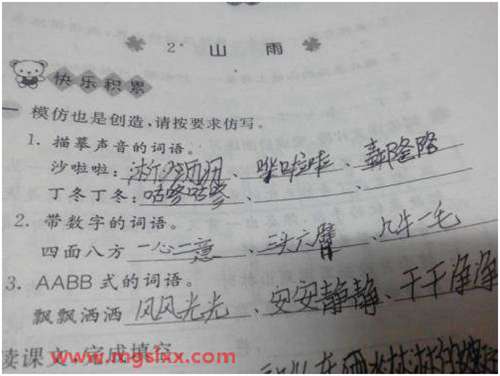 2* 山 雨
快乐积累
一 模仿也是创造,请按要求仿写。
1. 描摹声音的词语。
沙啦啦: 哗啦啦、轰隆隆
丁冬丁冬: 咕咚咕咚、
2. 带数字的词语。
四面八方 一心二意、三头六臂、九牛一毛
3. AABB 式的词语。
飘飘洒洒 风风光光、安安静静、干干净净
读课文,完成填空
www.mgshxx.com